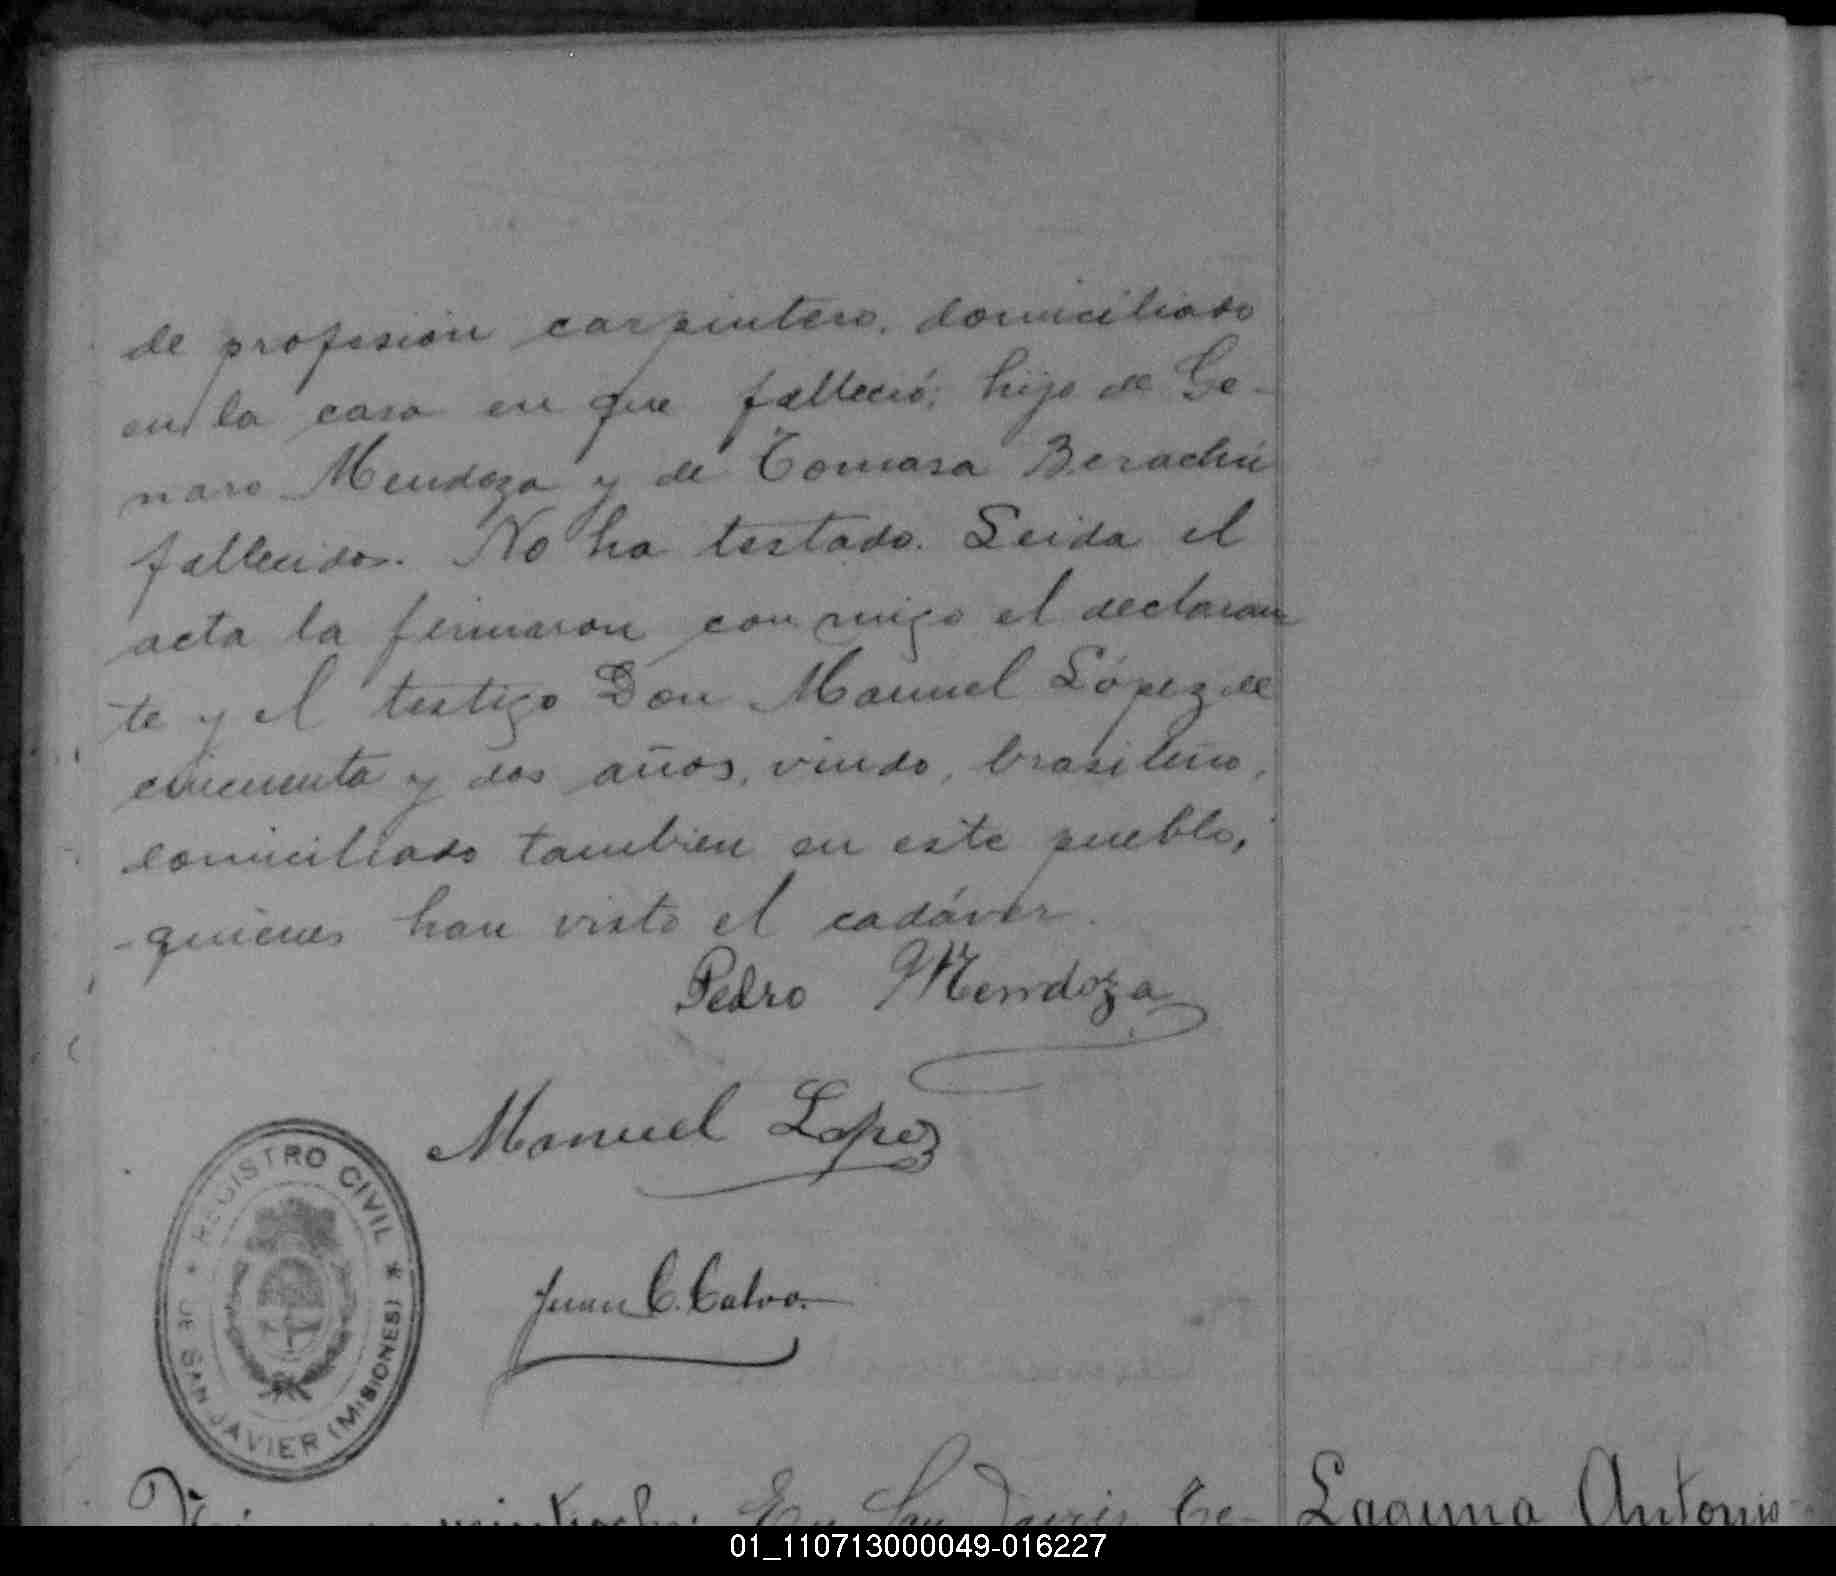 de profesión carpintero, domiciliado
en la casa en que falleció; hijo de Ge-
naro Mendoza y de Tomasa Berachú
fallecidos. No ha testado. Leida el
acta la firmaron conmigo el declaran
te y el testigo Don Manuel López de
cincuenta y dos años, viudo, brasileño,
domiciliado tambien en este pueblo,
quienes han visto el cadáver.
Pedro Mendoza
Manuel Lopez
REGISTRO CIVIL
DE SAN JAVIER (MISIONES)
Juan C. Calvo.
veintiocho: En San Javier, Te-
Laguna Antonio
01_110713000049-016227